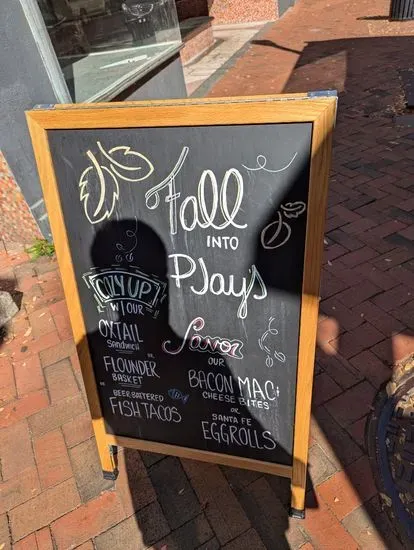 Fall
INTO
PJay's
COZY UP
W/OUR
OXTAIL
Sandwich
OR
FLOUNDER
BASKET
OR
BEER-BATTERED
FISH TACOS
Savor
OUR
BACON MAC &
CHEESE BITES
OR
SANTA FE
EGGROLLS